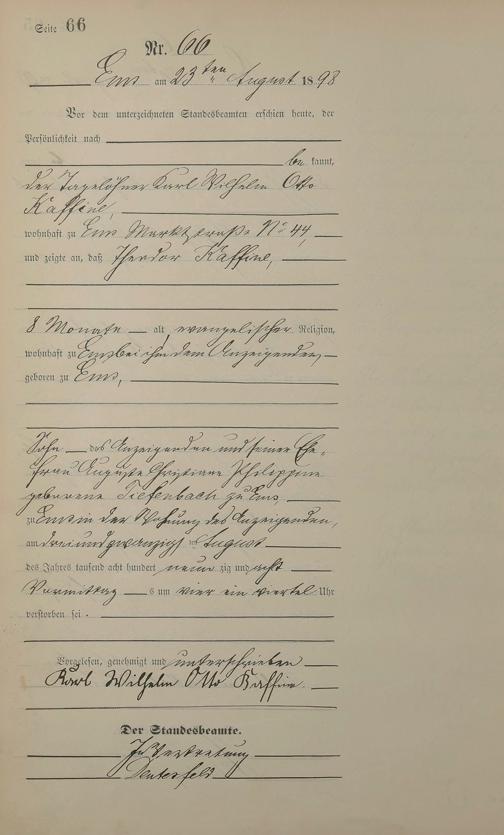 Seite 66
Nr. 66
Ems am 23ten August 1898
Vor dem unterzeichneten Standesbeamten erschien heute, der
Persönlichkeit nach
be kannt,
der Tagelöhner Karl Wilhelm Otto
Kaffine,
wohnhaft zu Ems Marktstraße No 44,
und zeigte an, daß Theodor Kaffine,
8 Monate alt evangelischer Religion,
wohnhaft zu Ems bei ihm dem Anzeigenden,
geboren zu Ems,
Sohn des Anzeigenden und seiner Ehe-
frau Auguste Christiane Philippine
geborene Tiefenbach zu Ems
zu Ems in der Wohnung des Anzeigenden,
am dreiundzwanzigsten August
des Jahres tausend acht hundert neun zig und acht
Vormittag s um vier ein viertel Uhr
verstorben sei.
Vorgelesen, genehmigt und unterschrieben
Karl Wilhelm Otto Kaffine
Der Standesbeamte.
In Vertretung